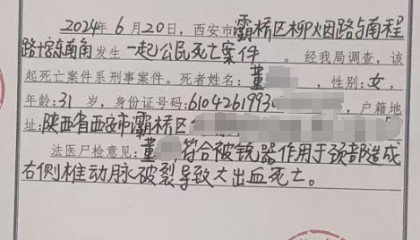 2024年6月20日，西安市灞桥区柳烟路与南程
路十字东南角发生一起公民死亡案件。经我局调查，该
起死亡案件系刑事案件。死者姓名：董，性别：女，
年龄：31岁，身份证号码：610426199308，户籍地
址：陕西省西安市灞桥区
法医尸检意见：董，符合被锐器作用于颈部造成
右侧椎动脉破裂导致大出血死亡。